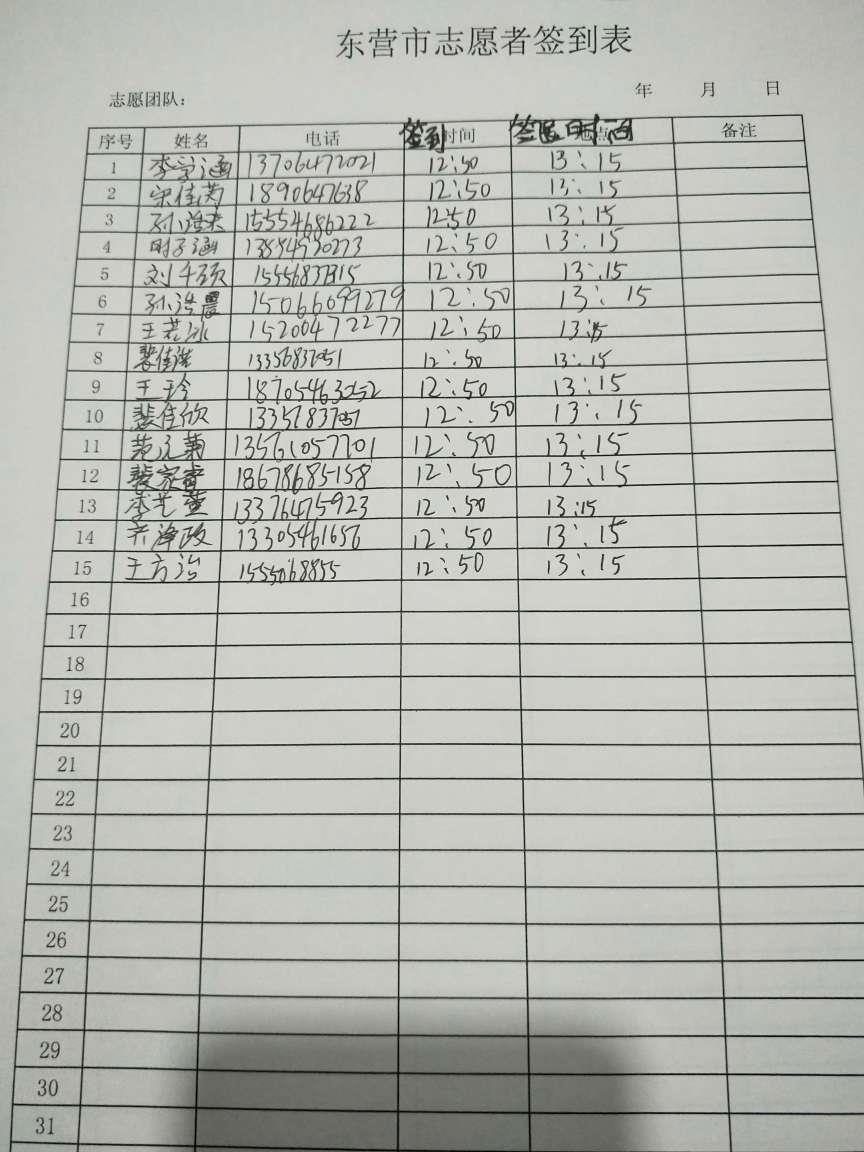 东营市志愿者签到表
志愿团队： 年 月 日
序号 姓名 电话 签到时间 签退时间 备注
1 李宇涵 13706472021 12:50 13:15
2 宋佳芮 1890647638 12:50 13:15
3 15554686222 12:50 13:15
4 明子涵 12:50 13:15
5 刘千硕 12:50 13:15
6 孙浩晨 15066099279 12:50 13:15
7 王若冰 15200472277 12:50 13:15
8 裴佳 12:50 13:15
9 王玲 18705463052 12:50 13:15
10 裴佳欣 12:50 13:15
11 13561057701 12:50 13:15
12 裴家睿 18678685158 12:50 13:15
13 李艺萱 13376475923 12:50 13:15
14 泽政 13305461656 12:50 13:15
15 王方治 1555068855 12:50 13:15
16
17
18
19
20
21
22
23
24
25
26
27
28
29
30
31